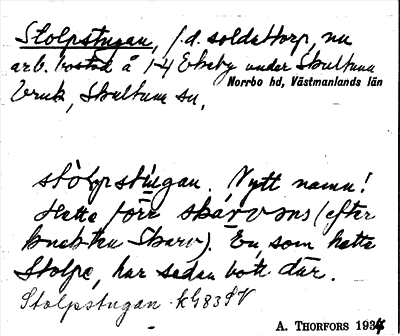 Stolpstugan, f.d. soldattorp, nu
arb. bostad å 1-4 Ekeby under Skultuna
Norrbo hd, Västmanlands län
bruk, Skultuna sn,
stólpstùgan. Nytt namn!
Hette före skárvəns (efter
knekten Skarv). En, som hette
Stolpe, har sedan bott där.
Stolpstugan. KG83SV
A. Thorfors 1934